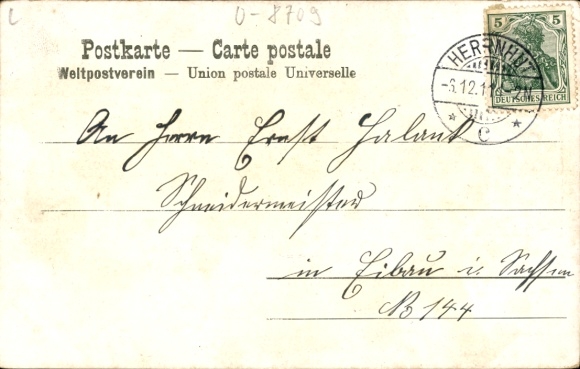 U-8709
Postkarte — Carte postale
Weltpostverein — Union postale Universelle
HERRNHUT
-6.12.11
C
5 5
DEUTSCHES REICH
An Herrn Ernst Halank
Schneidermeister
in Eibau i. Sachsen
N 144